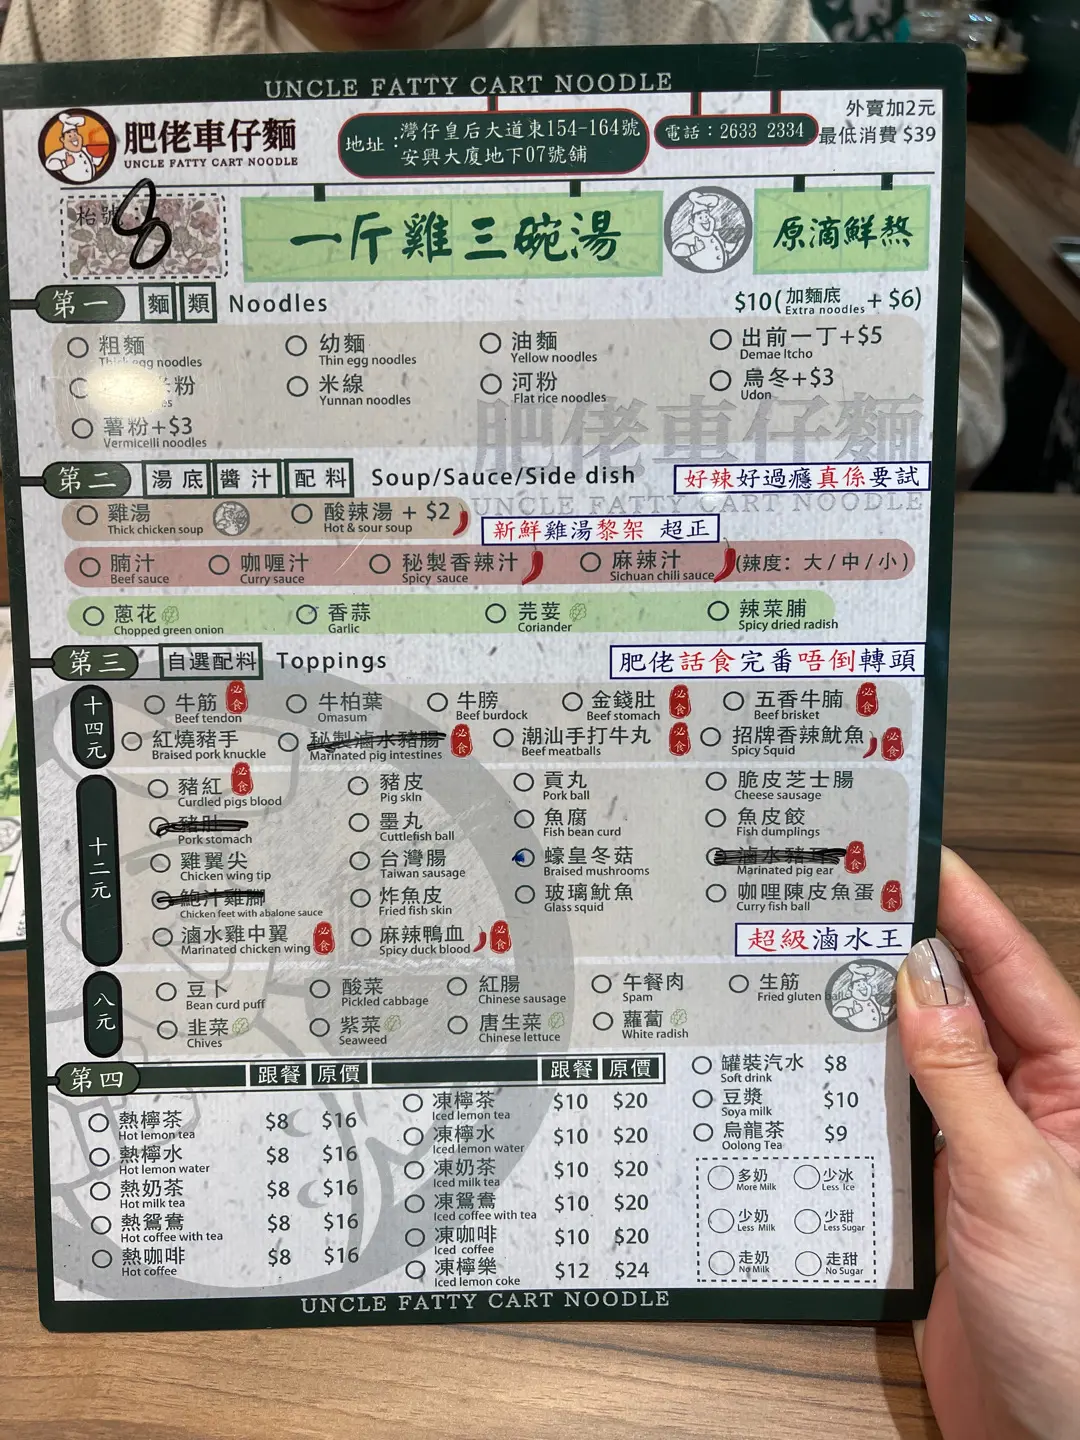 UNCLE FATTY CART NOODLE
肥佬車仔麵
UNCLE FATTY CART NOODLE
地址：灣仔皇后大道東154-164號
安興大廈地下07號舖
電話：2633 2334
外賣加2元
最低消費 $39
枱號：8
一斤雞三碗湯
原滴鮮熬
第一 麵類 Noodles
$10(加麵底 Extra noodles + $6)
粗麵 Thick egg noodles
幼麵 Thin egg noodles
油麵 Yellow noodles
出前一丁+$5 Demae Itcho
粉
米線 Yunnan noodles
河粉 Flat rice noodles
烏冬+$3 Udon
薯粉+$3 Vermicelli noodles
肥佬車仔麵
UNCLE FATTY CART NOODLE
第二 湯底 醬汁 配料 Soup/Sauce/Side dish
好辣好過癮真係要試
雞湯 Thick chicken soup
酸辣湯 + $2 Hot & sour soup
新鮮雞湯黎架 超正
腩汁 Beef sauce
咖喱汁 Curry sauce
秘製香辣汁 Spicy sauce
麻辣汁 Sichuan chili sauce
(辣度：大/中/小)
蔥花 Chopped green onion
香蒜 Garlic
芫荽 Coriander
辣菜脯 Spicy dried radish
第三 自選配料 Toppings
肥佬話食完番唔倒轉頭
十四元
牛筋 Beef tendon 必食
牛柏葉 Omasum
牛膀 Beef burdock
金錢肚 Beef stomach 必食
五香牛腩 Beef brisket 必食
紅燒豬手 Braised pork knuckle
秘製滷水豬腸 Marinated pig intestines 必食
潮汕手打牛丸 Beef meatballs 必食
招牌香辣魷魚 Spicy Squid 必食
十二元
豬紅 Curdled pigs blood 必食
豬皮 Pig skin
貢丸 Pork ball
脆皮芝士腸 Cheese sausage
豬肚 Pork stomach
墨丸 Cuttlefish ball
魚腐 Fish bean curd
魚皮餃 Fish dumplings
雞翼尖 Chicken wing tip
台灣腸 Taiwan sausage
蠔皇冬菇 Braised mushrooms
滷水豬耳 Marinated pig ear 必食
鮑汁雞腳 Chicken feet with abalone sauce
炸魚皮 Fried fish skin
玻璃魷魚 Glass squid
咖哩陳皮魚蛋 Curry fish ball 必食
滷水雞中翼 Marinated chicken wing 必食
麻辣鴨血 Spicy duck blood 必食
超級滷水王
八元
豆卜 Bean curd puff
酸菜 Pickled cabbage
紅腸 Chinese sausage
午餐肉 Spam
生筋 Fried gluten balls
韭菜 Chives
紫菜 Seaweed
唐生菜 Chinese lettuce
蘿蔔 White radish
第四 跟餐 原價 跟餐 原價
熱檸茶 Hot lemon tea $8 $16
熱檸水 Hot lemon water $8 $16
熱奶茶 Hot milk tea $8 $16
熱鴛鴦 Hot coffee with tea $8 $16
熱咖啡 Hot coffee $8 $16
凍檸茶 Iced lemon tea $10 $20
凍檸水 Iced lemon water $10 $20
凍奶茶 Iced milk tea $10 $20
凍鴛鴦 Iced coffee with tea $10 $20
凍咖啡 Iced coffee $10 $20
凍檸樂 Iced lemon coke $12 $24
罐裝汽水 Soft drink $8
豆漿 Soya milk $10
烏龍茶 Oolong Tea $9
多奶 More Milk
少冰 Less Ice
少奶 Less Milk
少甜 Less Sugar
走奶 No Milk
走甜 No Sugar
UNCLE FATTY CART NOODLE